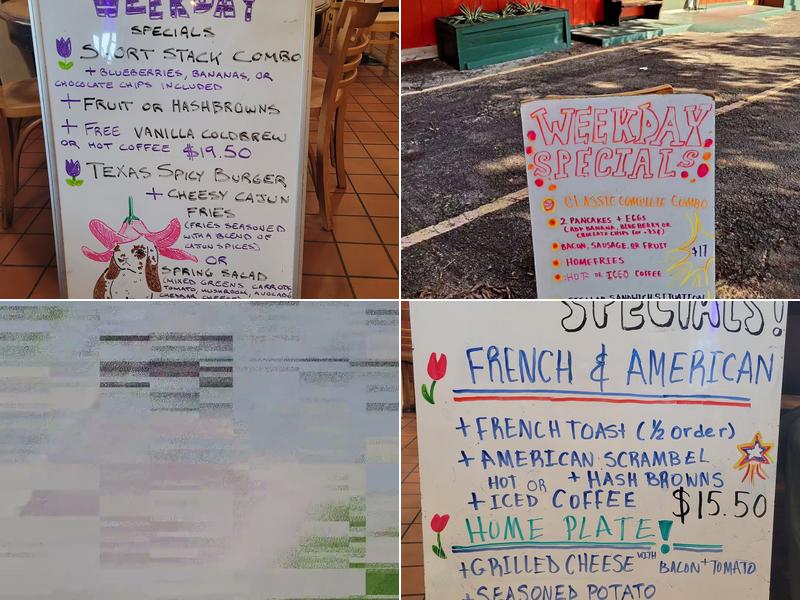 WEEKDAY
SPECIALS
SHORT STACK COMBO
+ BLUEBERRIES, BANANAS, OR
CHOCOLATE CHIPS INCLUDED
+ FRUIT OR HASHBROWNS
+ FREE VANILLA COLDBREW
OR HOT COFFEE $19.50
TEXAS SPICY BURGER
+ CHEESY CAJUN
FRIES
(FRIES SEASONED
WITH A BLEND OF
CAJUN SPICES)
OR
SPRING SALAD
(MIXED GREENS, CARROTS
TOMATO, MUSHROOM, AVOCADO
CHEDDAR CHEESE)
WEEKDAY
SPECIALS
CLASSIC COMPLETE COMBO
2 PANCAKES + EGGS
(ADD BANANA, BLUEBERRY OR
CHOCLATE CHIPS for .75¢)
BACON, SAUSAGE, OR FRUIT
$17
HOMEFRIES
HOT OR ICED COFFEE
SANDWICH SITUATION
SPECIALS!
FRENCH & AMERICAN
+ FRENCH TOAST (1/2 order)
+ AMERICAN SCRAMBEL
HOT OR + HASH BROWNS
+ ICED COFFEE $15.50
HOME PLATE!
+ GRILLED CHEESE WITH BACON + TOMATO
+ SEASONED POTATO